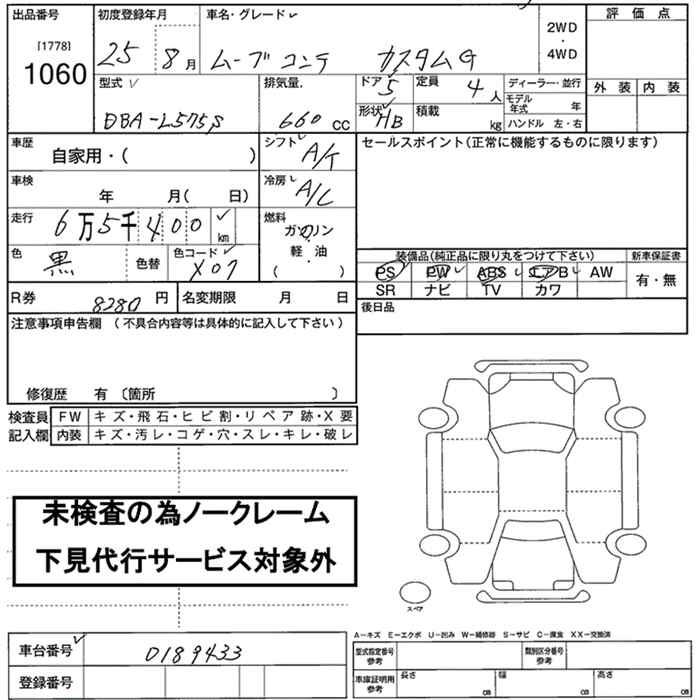 出品番号 初度登録年月 車名・グレード 評価点
[1778]
1060 25 8月 ムーブコンテ カスタムG 2WD・4WD
型式 排気量. ドア 5 定員 4人 ディーラー・並行 外装 内装
DBA-L575S 660 CC 形状 HB 積載 kg モデル年式 年
ハンドル 左・右
車歴 シフト セールスポイント(正常に機能するものに限ります)
自家用・( ) A/T
車検 冷房
年 月( 日) A/C
走行 6万5千400 km 燃料
ガソリン
軽・油
( )
色 黒 色替 色コード X07
装備品(純正品に限り丸をつけて下さい) 新車保証書
PS PW ABS エアB AW 有・無
SR ナビ TV カワ
R券 8280円 名変期限 月 日 後日品
注意事項申告欄 (不具合内容等は具体的に記入して下さい)
修復歴 有 〔箇所 〕
検査員 FW キズ・飛石・ヒビ割・リペア跡・X要
記入欄 内装 キズ・汚レ・コゲ・穴・スレ・キレ・破レ
未検査の為ノークレーム
下見代行サービス対象外
スペア
A-キズ E-エクボ U-凹み W-補修跡 S-サビ C-腐食 XX-交換済
車台番号 0189433 型式指定番号参考 類別区分番号参考
登録番号 車庫証明用参考 長さ cm 幅 cm 高さ cm